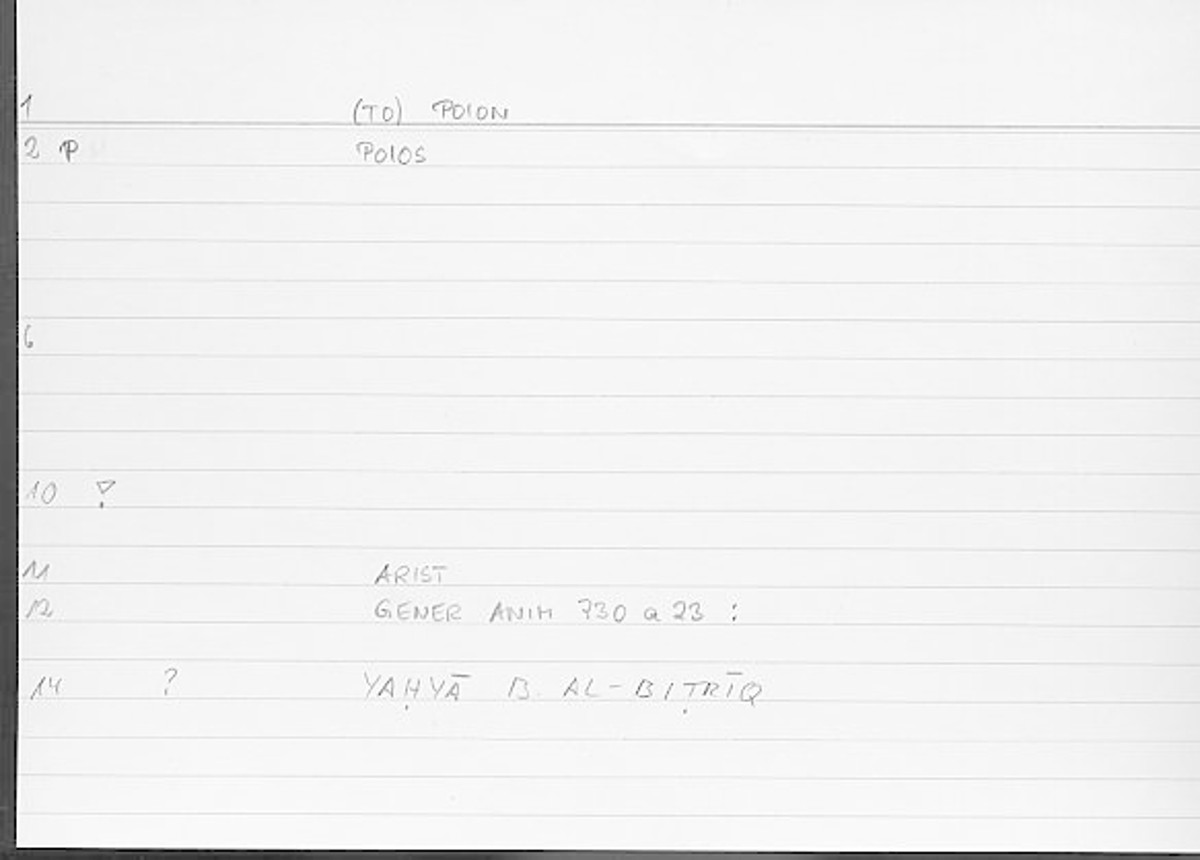 1 (TO) POION
2 P POIOS
6
10
11 ARIST
12 GENER ANIM 730 a 23 :
14 ? YAḤYĀ B. AL-BIṬRĪQ